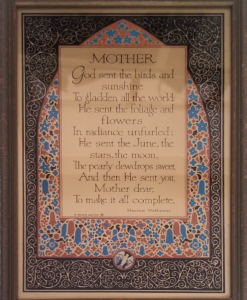 MOTHER
God sent the birds and
sunshine
To gladden all the world;
He sent the foliage and
flowers
In radiance unfurled;
He sent the June, the
stars, the moon,
The pearly dewdrops sweet,
And then He sent you,
Mother dear,
To make it all complete.